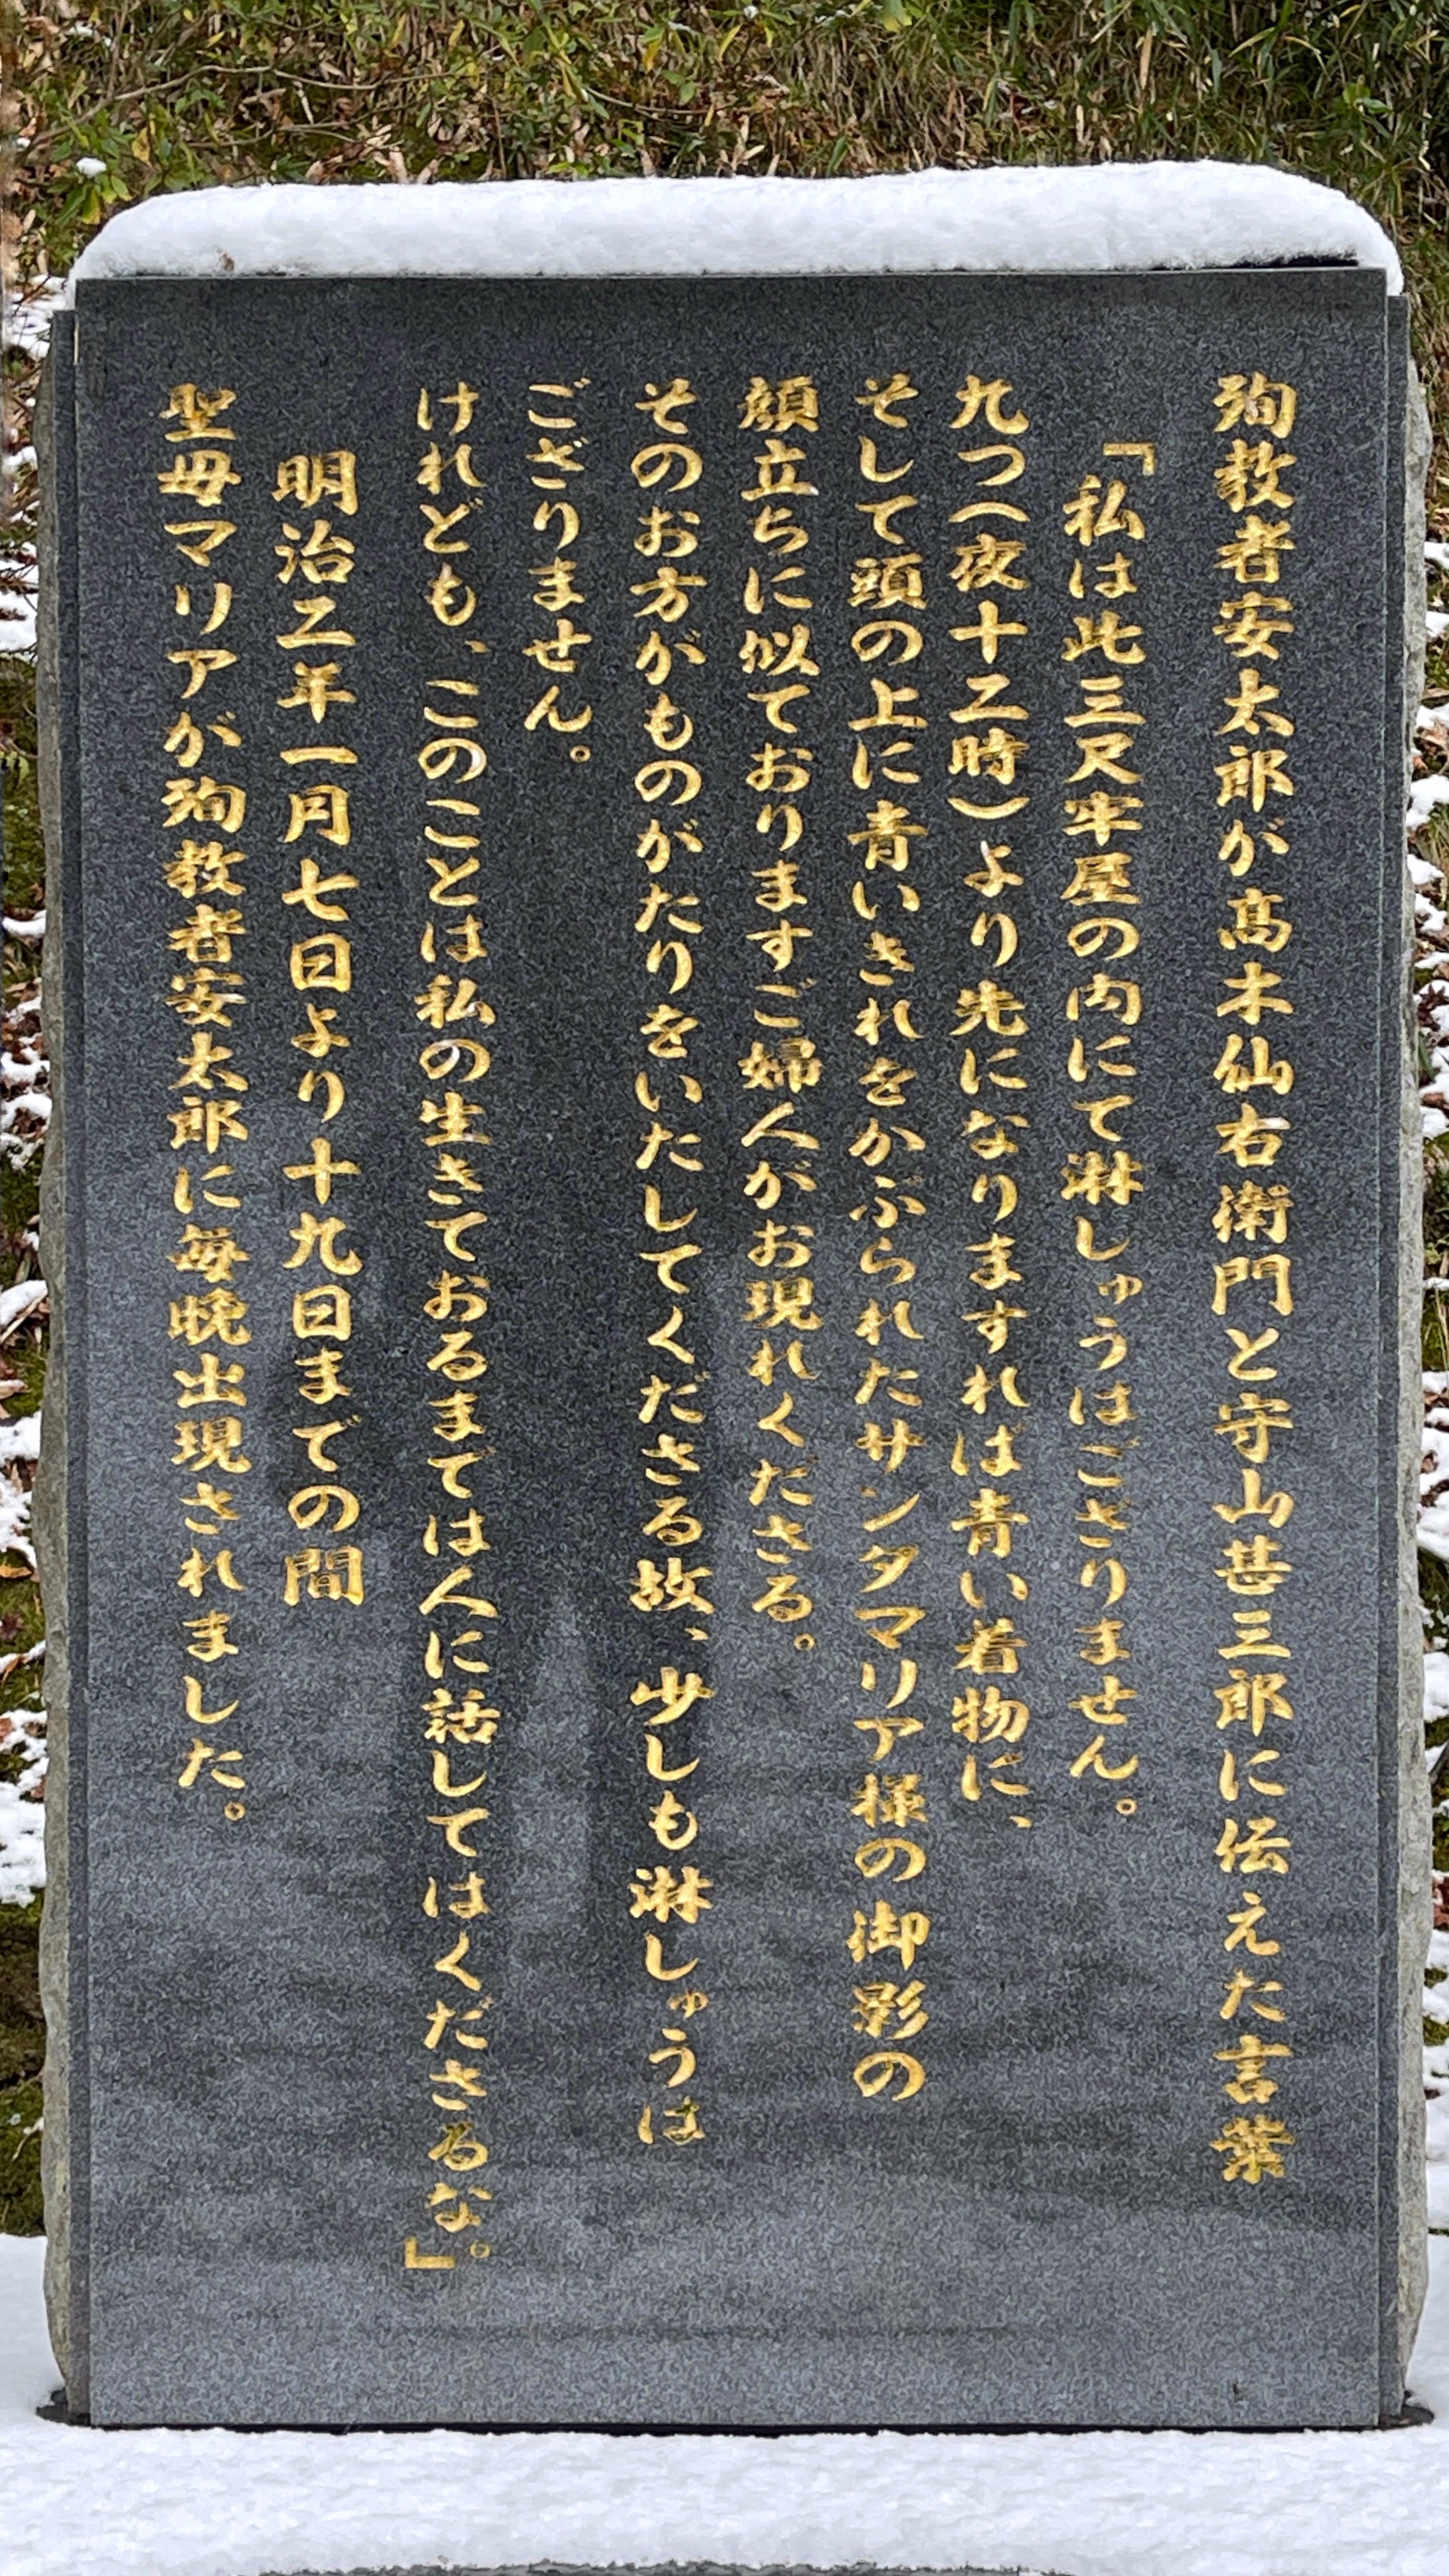 殉教者安太郎が髙木仙右衛門と守山甚三郎に伝えた言葉
「私は此三尺牢屋の内にて淋しゅうはござりません。
九つ(夜十二時)より先になりますれば青い着物に、
そして頭の上に青いきれをかぶられたサンタマリア様の御影の
顔立ちに似ておりますご婦人がお現れくださる。
そのお方がものがたりをいたしてくださる故、少しも淋しゅうは
ござりません。
けれども、このことは私の生きておるまでは人に話してはくださるな。」
明治二年一月七日より十九日までの間
聖母マリアが殉教者安太郎に毎晩出現されました。